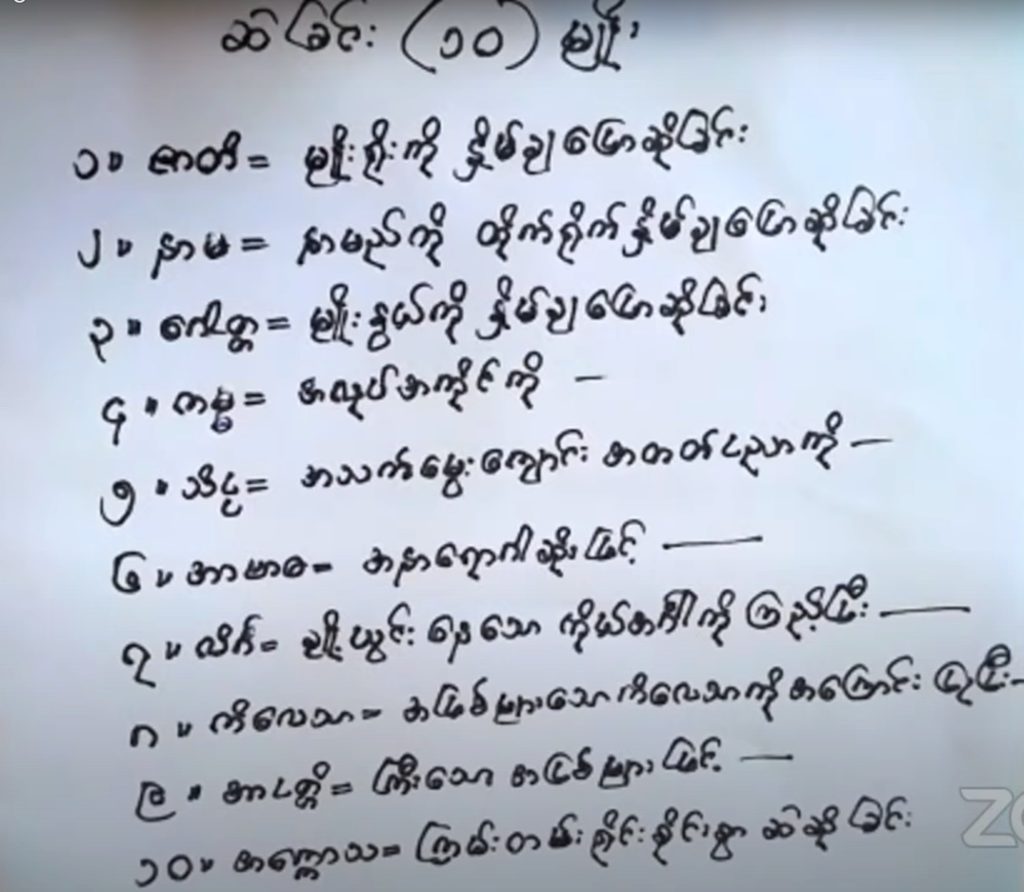 ဆဲခြင်း (၁၀) မျိုး
၁။ ဇာတိ = မျိုးရိုးကို နှိမ်ချပြောဆိုခြင်း
၂။ နာမ = နာမည်ကို တိုက်ရိုက်နှိမ်ချပြောဆိုခြင်း
၃။ ဂေါတ္တ = မျိုးနွယ်ကို နှိမ်ချပြောဆိုခြင်း
၄။ ကမ္မ = အလုပ်အကိုင်ကို —
၅။ သိပ္ပ = အသက်မွေးကျောင်း အတတ်ပညာကို —
၆။ အာဗာဓ = အနာရောဂါဆိုးဖြင့် —
၇။ လိင်္ဂ = ချို့ယွင်းနေသော ကိုယ်အင်္ဂါကို ကြည့်ပြီး —
၈။ ကိလေသာ = အပြစ်များသောကိလေသာကို အကြောင်းပြုပြီး —
၉။ အာပတ္တိ = ကြီးသော အပြစ်များဖြင့် —
၁၀။ အက္ကောသ = ကြမ်းတမ်းရိုင်းစိုင်းစွာ ဆဲဆိုခြင်း